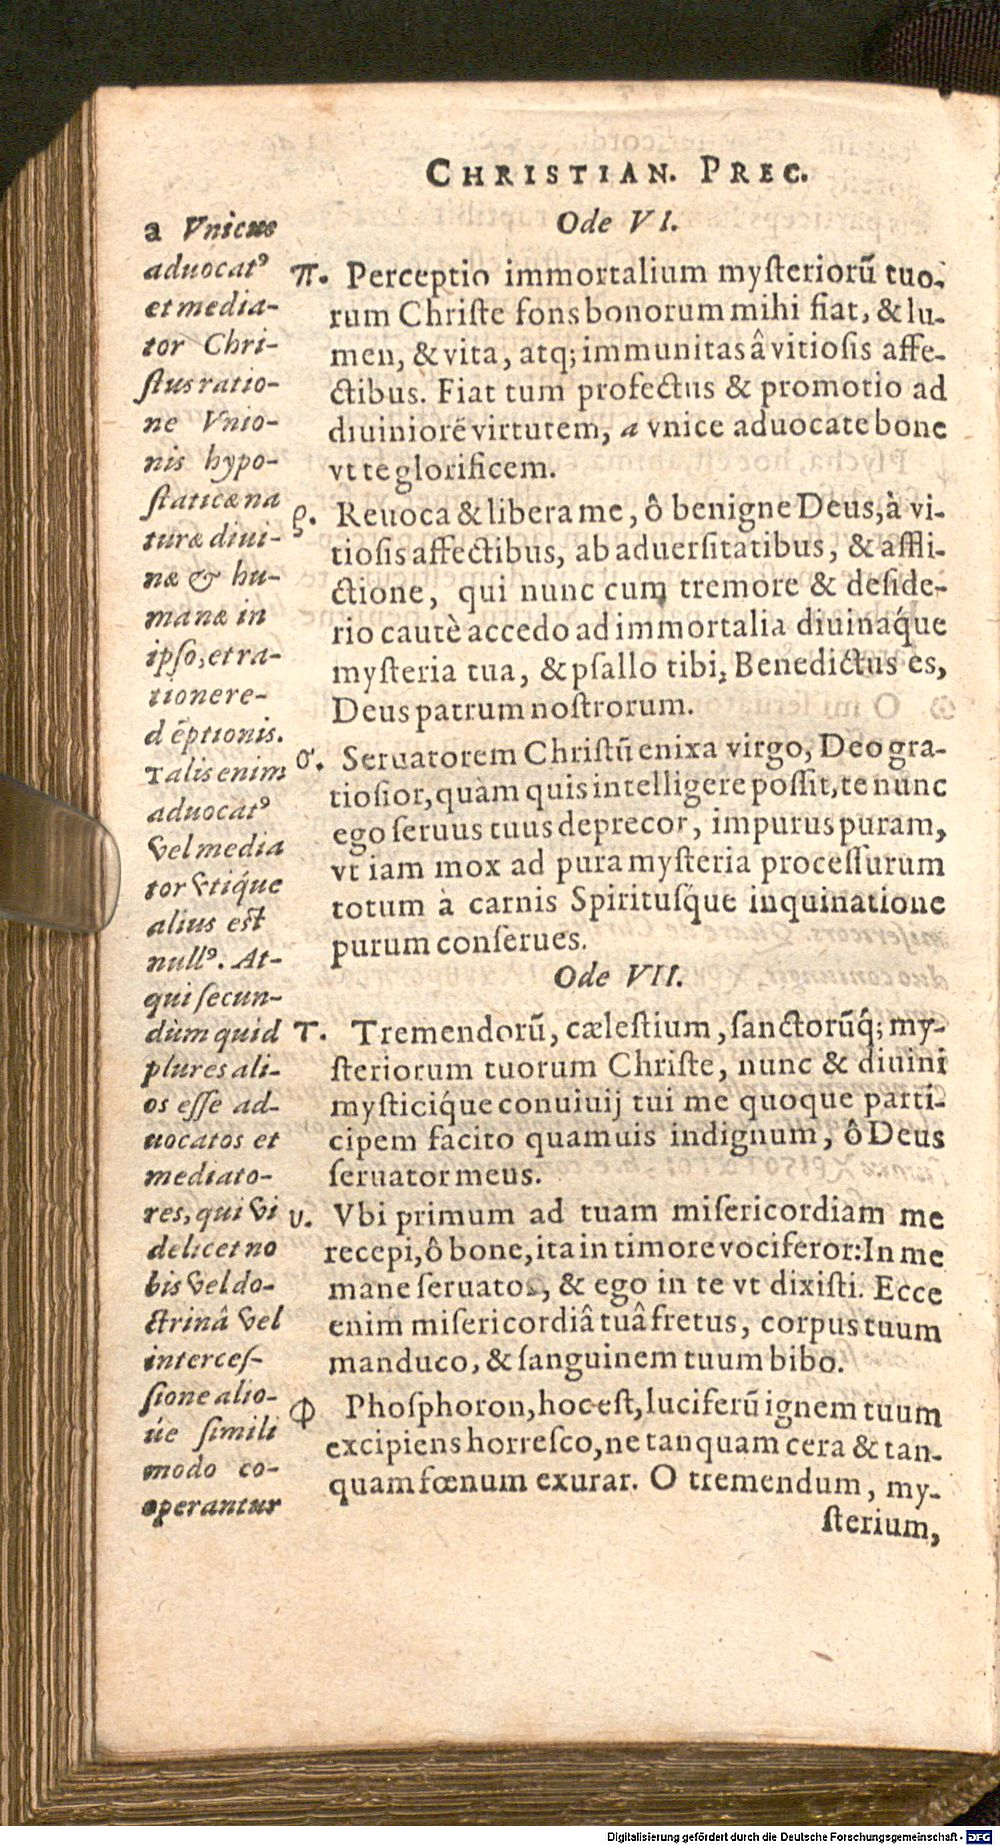 CHRISTIAN. PREC.
Ode VI.
π. Perceptio immortalium myſteriorũ tuo-
rum Chriſte fons bonorum mihi fiat, & lu-
men, & vita, atq; immunitas â vitioſis affe-
ctibus. Fiat tum profectus & promotio ad
diuiniorẽ virtutem, a vnice aduocate bone
vt te glorificem.
ϱ. Reuoca & libera me, ô benigne Deus, à vi-
tioſis affectibus, ab aduerſitatibus, & affli-
ctione, qui nunc cum tremore & deſide-
rio cautè accedo ad immortalia diuinaq́ue
myſteria tua, & pſallo tibi, Benedictus es,
Deus patrum noſtrorum.
σ. Seruatorem Chriſtũ enixa virgo, Deo gra-
tioſior, quàm quis intelligere poſſit, te nunc
ego ſeruus tuus deprecor, impurus puram,
vt iam mox ad pura myſteria proceſſurum
totum à carnis Spirituſq́ue inquinatione
purum conſerues.
Ode VII.
τ. Tremendorũ, cæleſtium, ſanctorũq́; my-
ſteriorum tuorum Chriſte, nunc & diuini
myſticiq́ue conuiuij tui me quoque parti-
cipem facito quamuis indignum, ô Deus
ſeruator meus.
υ. Vbi primum ad tuam miſericordiam me
recepi, ô bone, ita in timore vociferor: In me
mane ſeruator, & ego in te vt dixiſti. Ecce
enim miſericordiâ tuâ fretus, corpus tuum
manduco, & ſanguinem tuum bibo.
Φ Phoſphoron, hoc eſt, luciferũ ignem tuum
excipiens horreſco, ne tanquam cera & tan-
quam fœnum exurar. O tremendum, my-
ſterium,
a Vnicus
aduocatꝰ
et media-
tor Chri-
ſtus ratio-
ne Vnio-
nis hypo-
ſtaticæ na
turæ diui-
næ & hu-
manæ in
ipſo, et ra-
tione re-
dẽptionis.
Talis enim
aduocatꝰ
vel media
tor vtiq́ue
alius eſt
nullꝰ. At-
qui ſecun-
dùm quid
plures ali-
os eſſe ad-
uocatos et
mediato-
res, qui vi
delicet no
bis vel do-
ctrinâ vel
interceſ-
ſione alio-
úe ſimili
modo co-
operantur
Digitalisierung gefördert durch die Deutsche Forschungsgemeinschaft - DFG